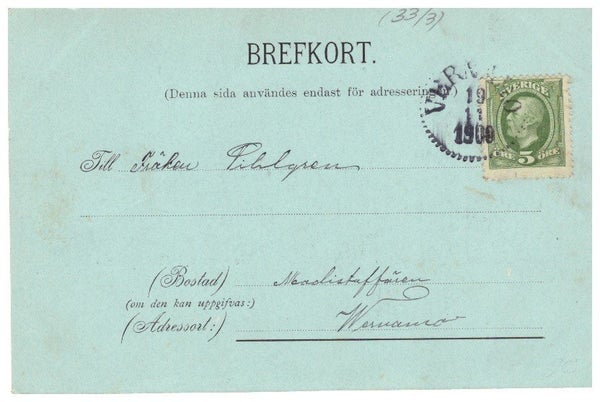 (33/3)
BREFKORT.
(Denna sida användes endast för adressering
SVERIGE
19
11
1900
5
ÖRE
Till Fröken Pihlgren
(Bostad) Modistaffären
(om den kan uppgifvas:)
(Adressort:) Wernamo